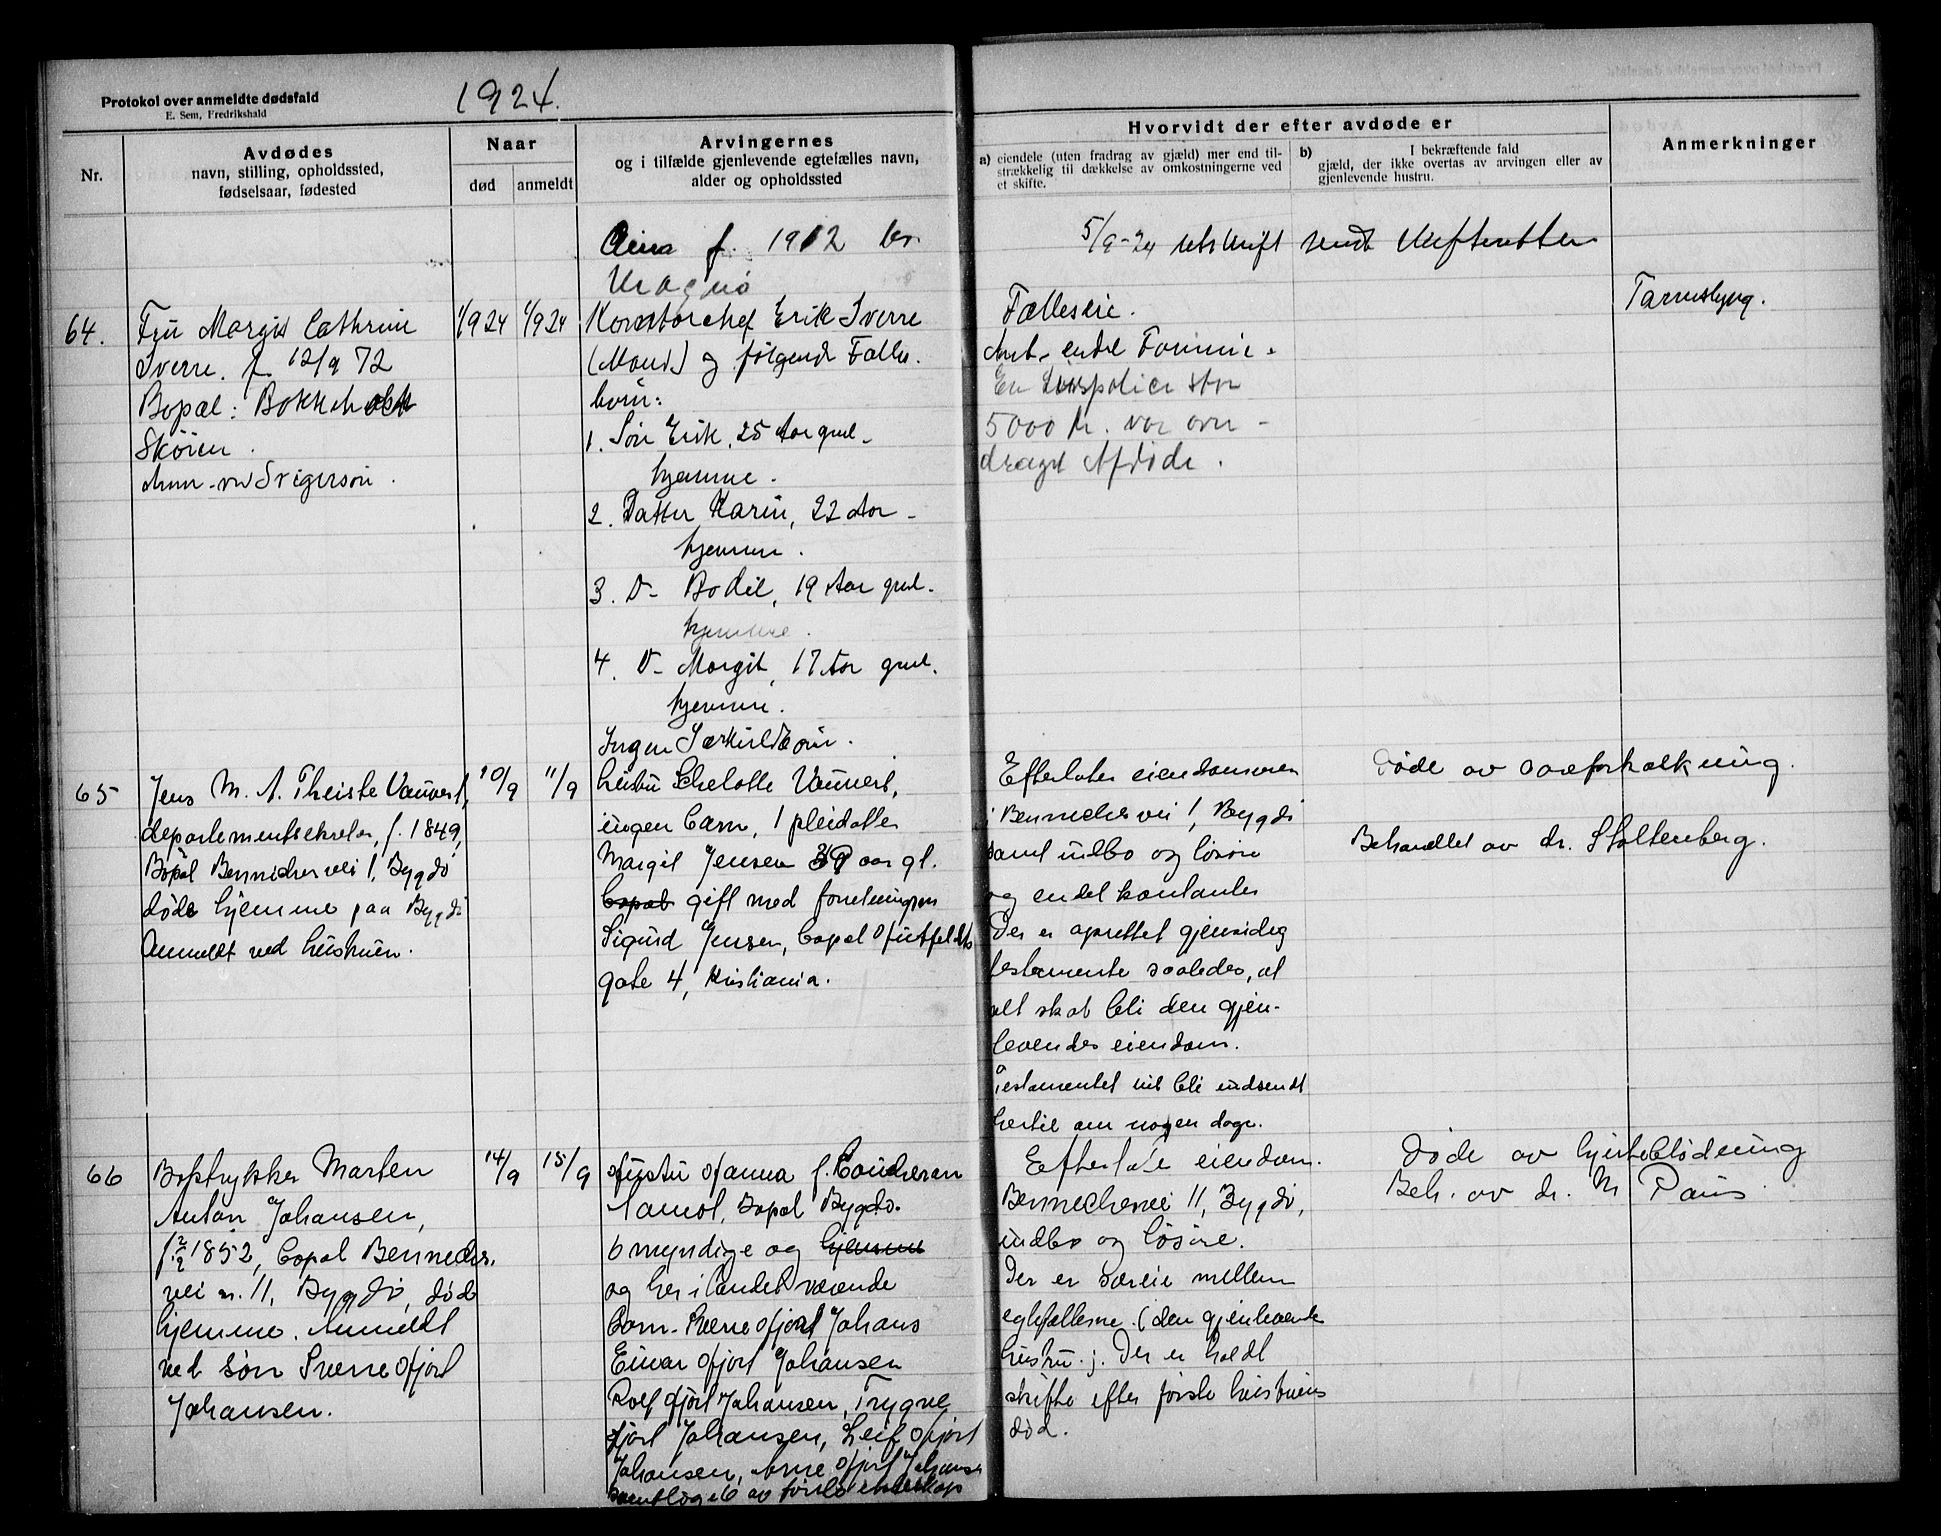 Protokol over anmeldte dødsfald
E. Sem, Fredrikshald
1924.
Nr.
Avdødes
navn, stilling, opholdssted,
fødselsaar, fødested
Naar
død
anmeldt
Arvingernes
og i tilfælde gjenlevende egtefælles navn,
alder og opholdssted
Hvorvidt der efter avdøde er
a) eiendele (uten fradrag av gjæld) mer end til-
strækkelig til dækkelse av omkostningerne ved
et skifte.
b) I bekræftende fald
gjæld, der ikke overtas av arvingen eller av
gjenlevende hustru.
Anmerkninger
f. 1912
5/9-24 utskrift sendt skifteretten
64.
Fru Margit Cathrine
Sverre. f. 12/9 72
Bopæl:
Skøien.
Anm. ved Svigersøn.
1/9 24
1/9 24
Kontorchef Erik Sverre
(Mand) og følgende Fælles-
børn:
1. Søn Erik, 25 Aar gml.
hjemme.
2. Datter Karin, 22 Aar
hjemme.
3. D- Bodil, 19 Aar gml.
hjemme.
4. D- Margit, 17 Aar gml.
hjemme.
Ingen Særkuldbørn.
Fælleseie.
Ant. endel Formue.
En Livspolice stor
5000 Kr. var over-
draget Afdøde.
Tarmslyng.
65
Jens M. A. Theiste Vauvert,
departementsekretær, f. 1849,
Bopæl Bennechesvei 1, Bygdø
døde hjemme paa Bygdø
Anmeldt ved hustruen.
10/9
11/9
hustru Vauvert,
ingen barn, 1 pleidatter
Margit Jensen 39 aar gl.
bopæl gift med forretningsm
Sigurd Jensen, bopæl Huitfeldts
gate 4, Kristiania.
Efterlater eiendommen
i Bennechesvei 1, Bygdø
samt indbo og løsøre
og endel kontanter
Der er oprettet gjensidig
testamente saaledes, at
alt skal bli den gjen-
levendes eiendom.
Testamentet vil bli indsendt
hertil om nogen dage.
Døde av aareforkalkning.
Behandlet av dr. Stoltenberg.
66
Boktrykker Marten
Anton Johansen,
f 2/2 1852, bopæl Benneches.
vei nr. 11, Bygdø, død
hjemme. Anmeldt
ved søn Sverre Hjort
Johansen.
14/9
15/9
Hustru Hanna f.
Bopæl Bygdø.
6 myndige og hjemme
og her i landet værende
barn. Sverre Hjort Johans
Einar Hjort Johansen
Rolf Hjort Johansen, Trygve
Hjort Johansen, Leif Hjort
Johansen, Arne Hjort Johanse
samtlige 6 av første egteskap
Efterlate eiendom.
Bennechesvei 11, Bygdø,
indbo og løsøre.
Der er særeie mellem
egtefællerne (den gjenlevende
hustru). Der er holdt
skifte efter første hustruens
død.
Døde av hjerteblødning
Beh. av dr. M Paus